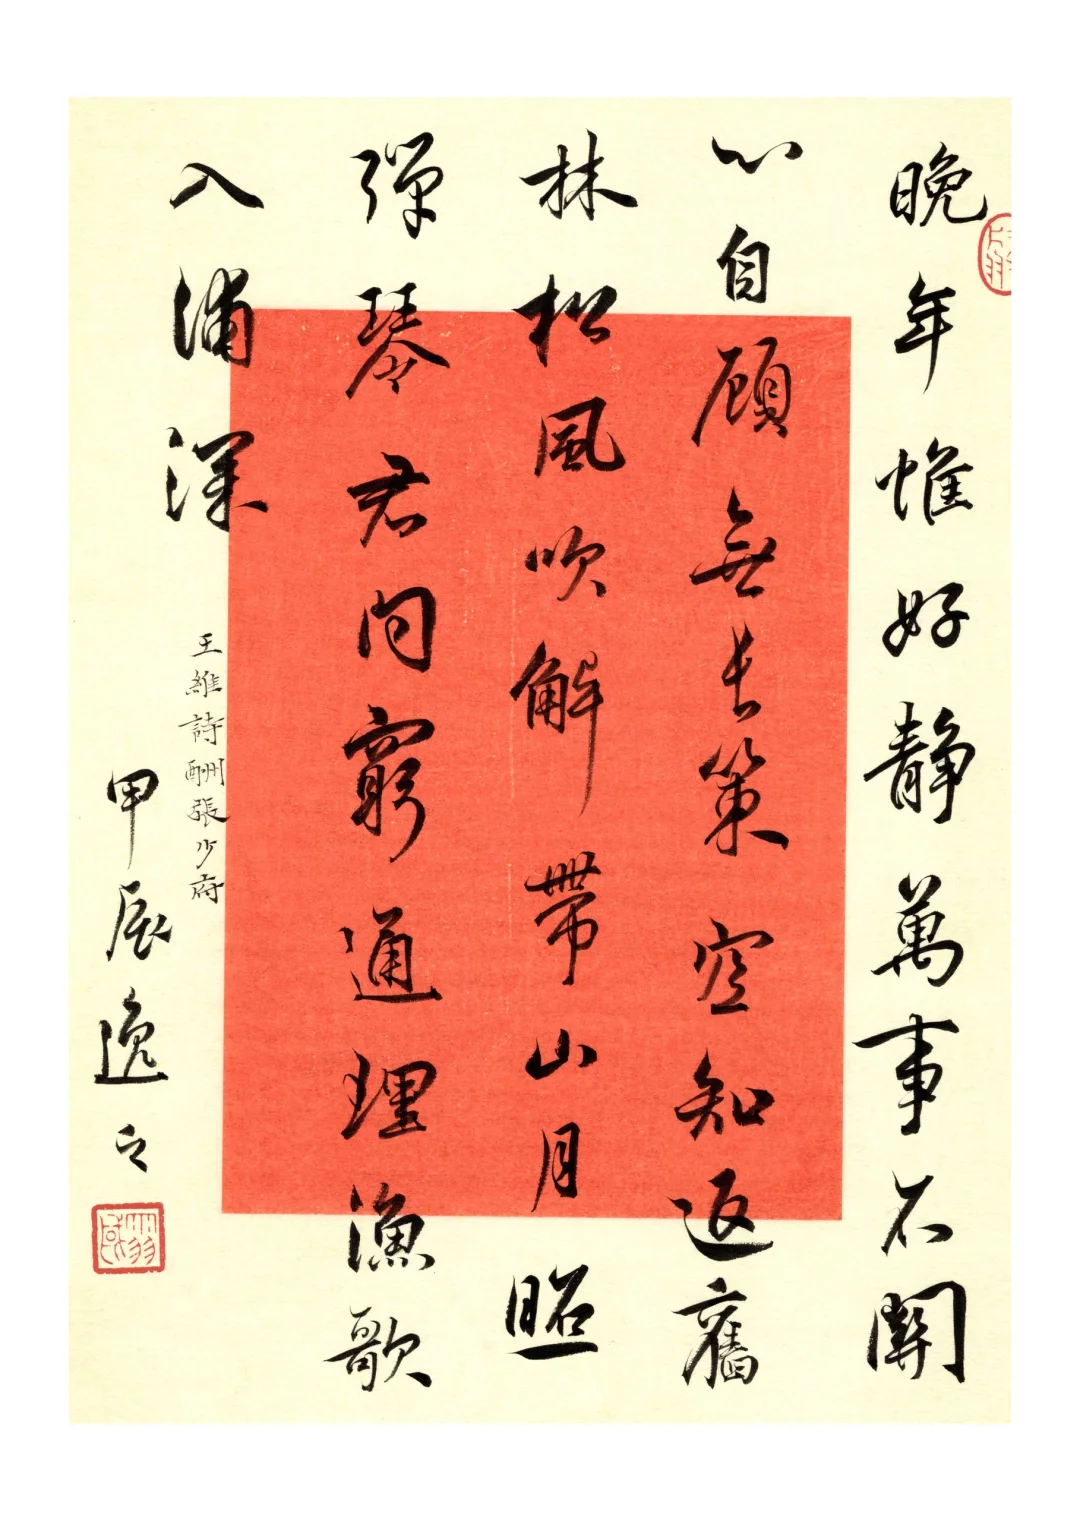 晚年惟好靜萬事不關
心自顧無長策空知返舊
林松風吹解帶山月照
彈琴君問窮通理漁歌
入浦深
王維詩酬張少府
甲辰逸之